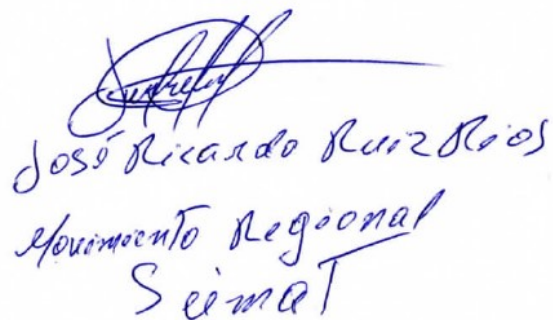 José Ricardo Ruiz Rios
Movimiento Regional